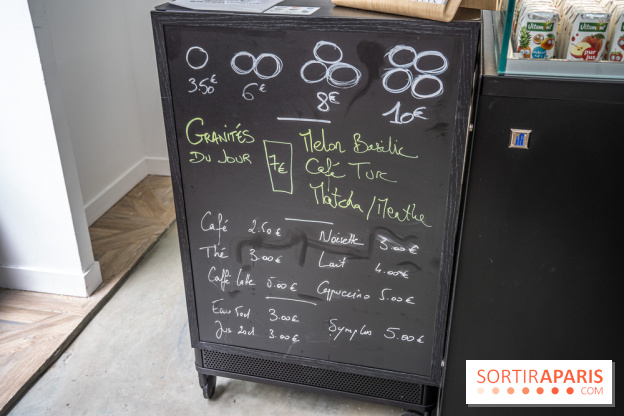 Vitamont
Vitamont
pur jus
3.50
6€
8€
10€
GRANITÉS
DU JOUR
7€
Melon Basilic
Café Turc
Matcha/Menthe
Café 2.50€
Noisette 3.00€
Thé 3.00€
Lait 4.00€
Caffè latte 5.00€
Cappuccino 5.00€
Eau 50cl 3.00€
Jus 20cl 3.00€
Symples 5.00€
SORTIRAPARIS
.COM